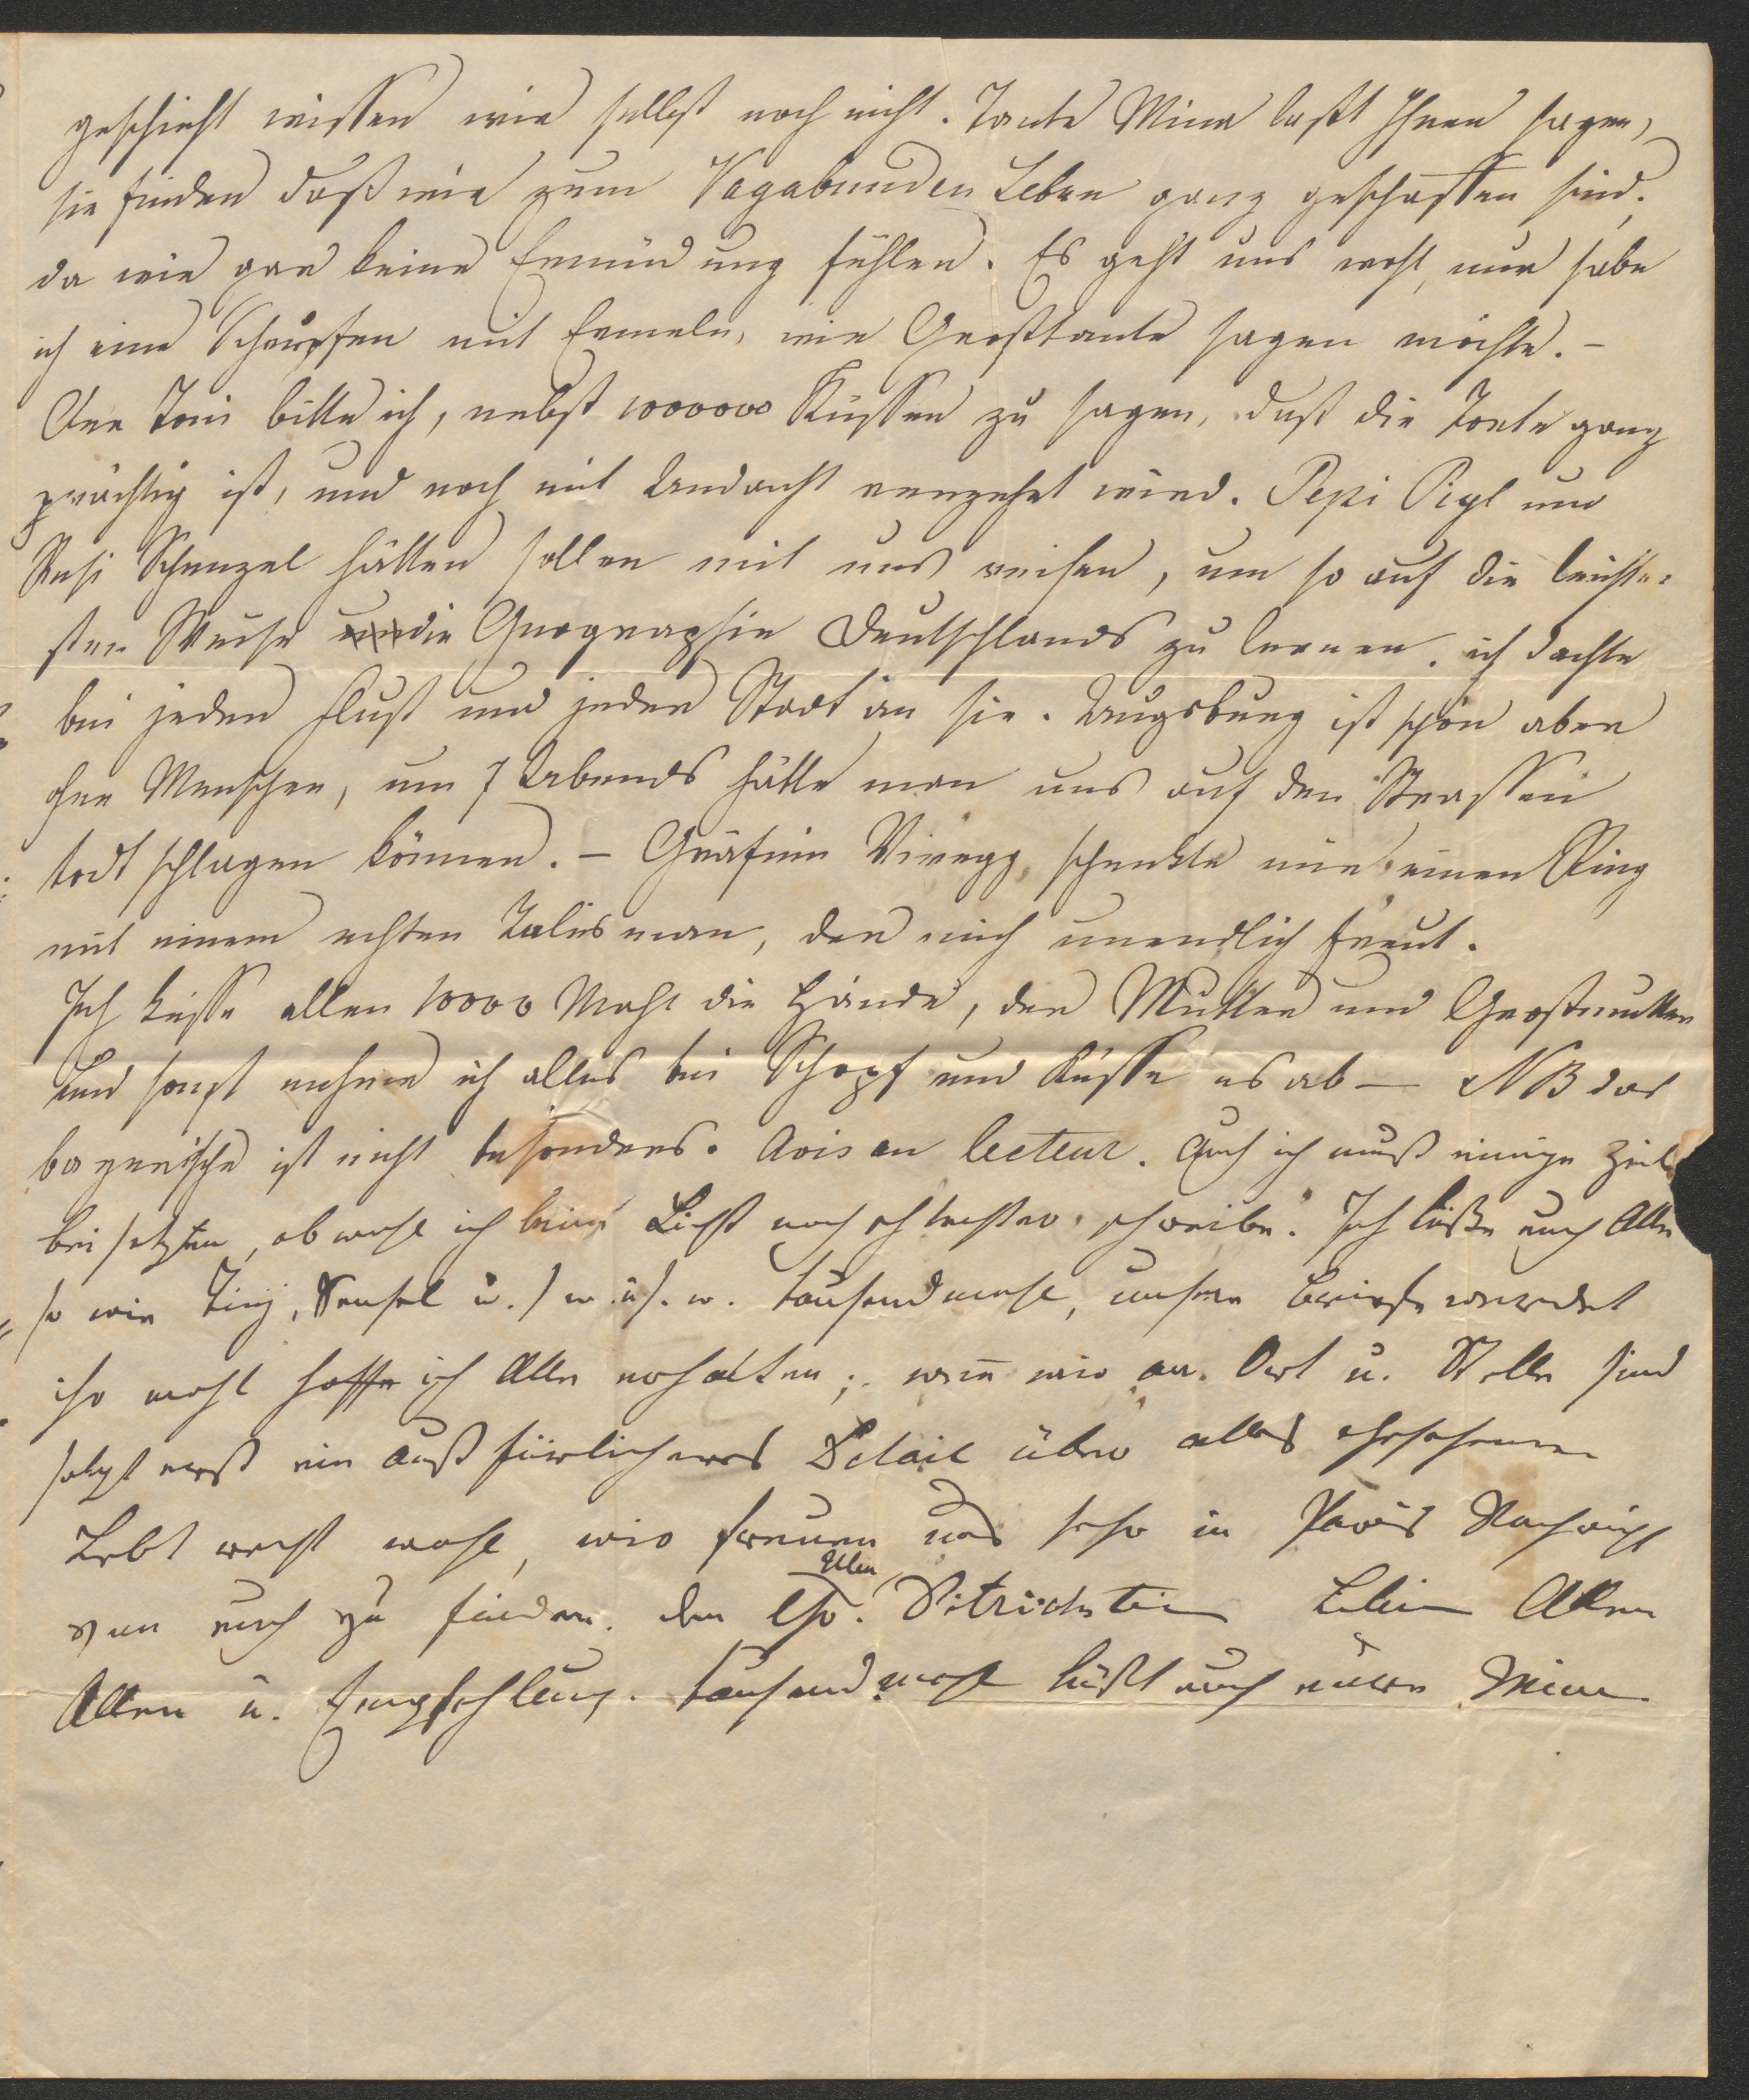 geschieht wissen wir selbst noch nicht. Tante Mina laßt Ihnen sagen,
sie finden daß wir zum Vagabunden Leben ganz geschaffen sind,
da wir gar keine Ermüdung fühlen. Es geht uns wohl, nur habe
ich eine Schnupfen mit Ermeln, wie Grostante sagen möchte. –
Der Toni bitte ich, nebst 1000000 Küssen zu sagen, daß die Torte ganz
prächtig ist, und noch mit Andacht verzehrt wird. Pepi Pigl und
Resi Schenzel hätten sollen mit uns reisen, um so auf die leichte-
sten Weise die Geographie Deutschlands zu lernen. ich dachte
bei jeden Fluß und jeder Stadt an sie. Augsburg ist schön aber
ohne Menschen, um 7 Abends hätte man uns auf den Strassen
todt schlagen können. – Gräfinn Viregg schenkte mir einen Ring
mit einem echten Talisman, der mich unendlich freut.
Ich küsse allen 10000 Mahl die Hände, der Mutter und Grosmutter
und sonst nehme ich alles bei Schopf und küsse es ab — NB das
bayerische ist nicht besonders. Avis au lecteur. Auch ich muß einige Zeil
bei setzten, ob wohl ich beim Licht noch schlechter schreibe. Ich küße euch Alle
so wie Tinj, u. s w. u s. w. tausendmahl, unsere Briefe werdet
ihr wohl hoffe ich Alle erhalten; wenn wir an Ort u. Stelle sind
folgt erst ein außfürlicheres Detail über alles
Lebt recht wohl, wir freuen uns sehr in Paris Nachricht
von euch zu finden. den Ditrichstein Allen
Allen u. Empfehlung. tausendmahl küßt euch eure Mina